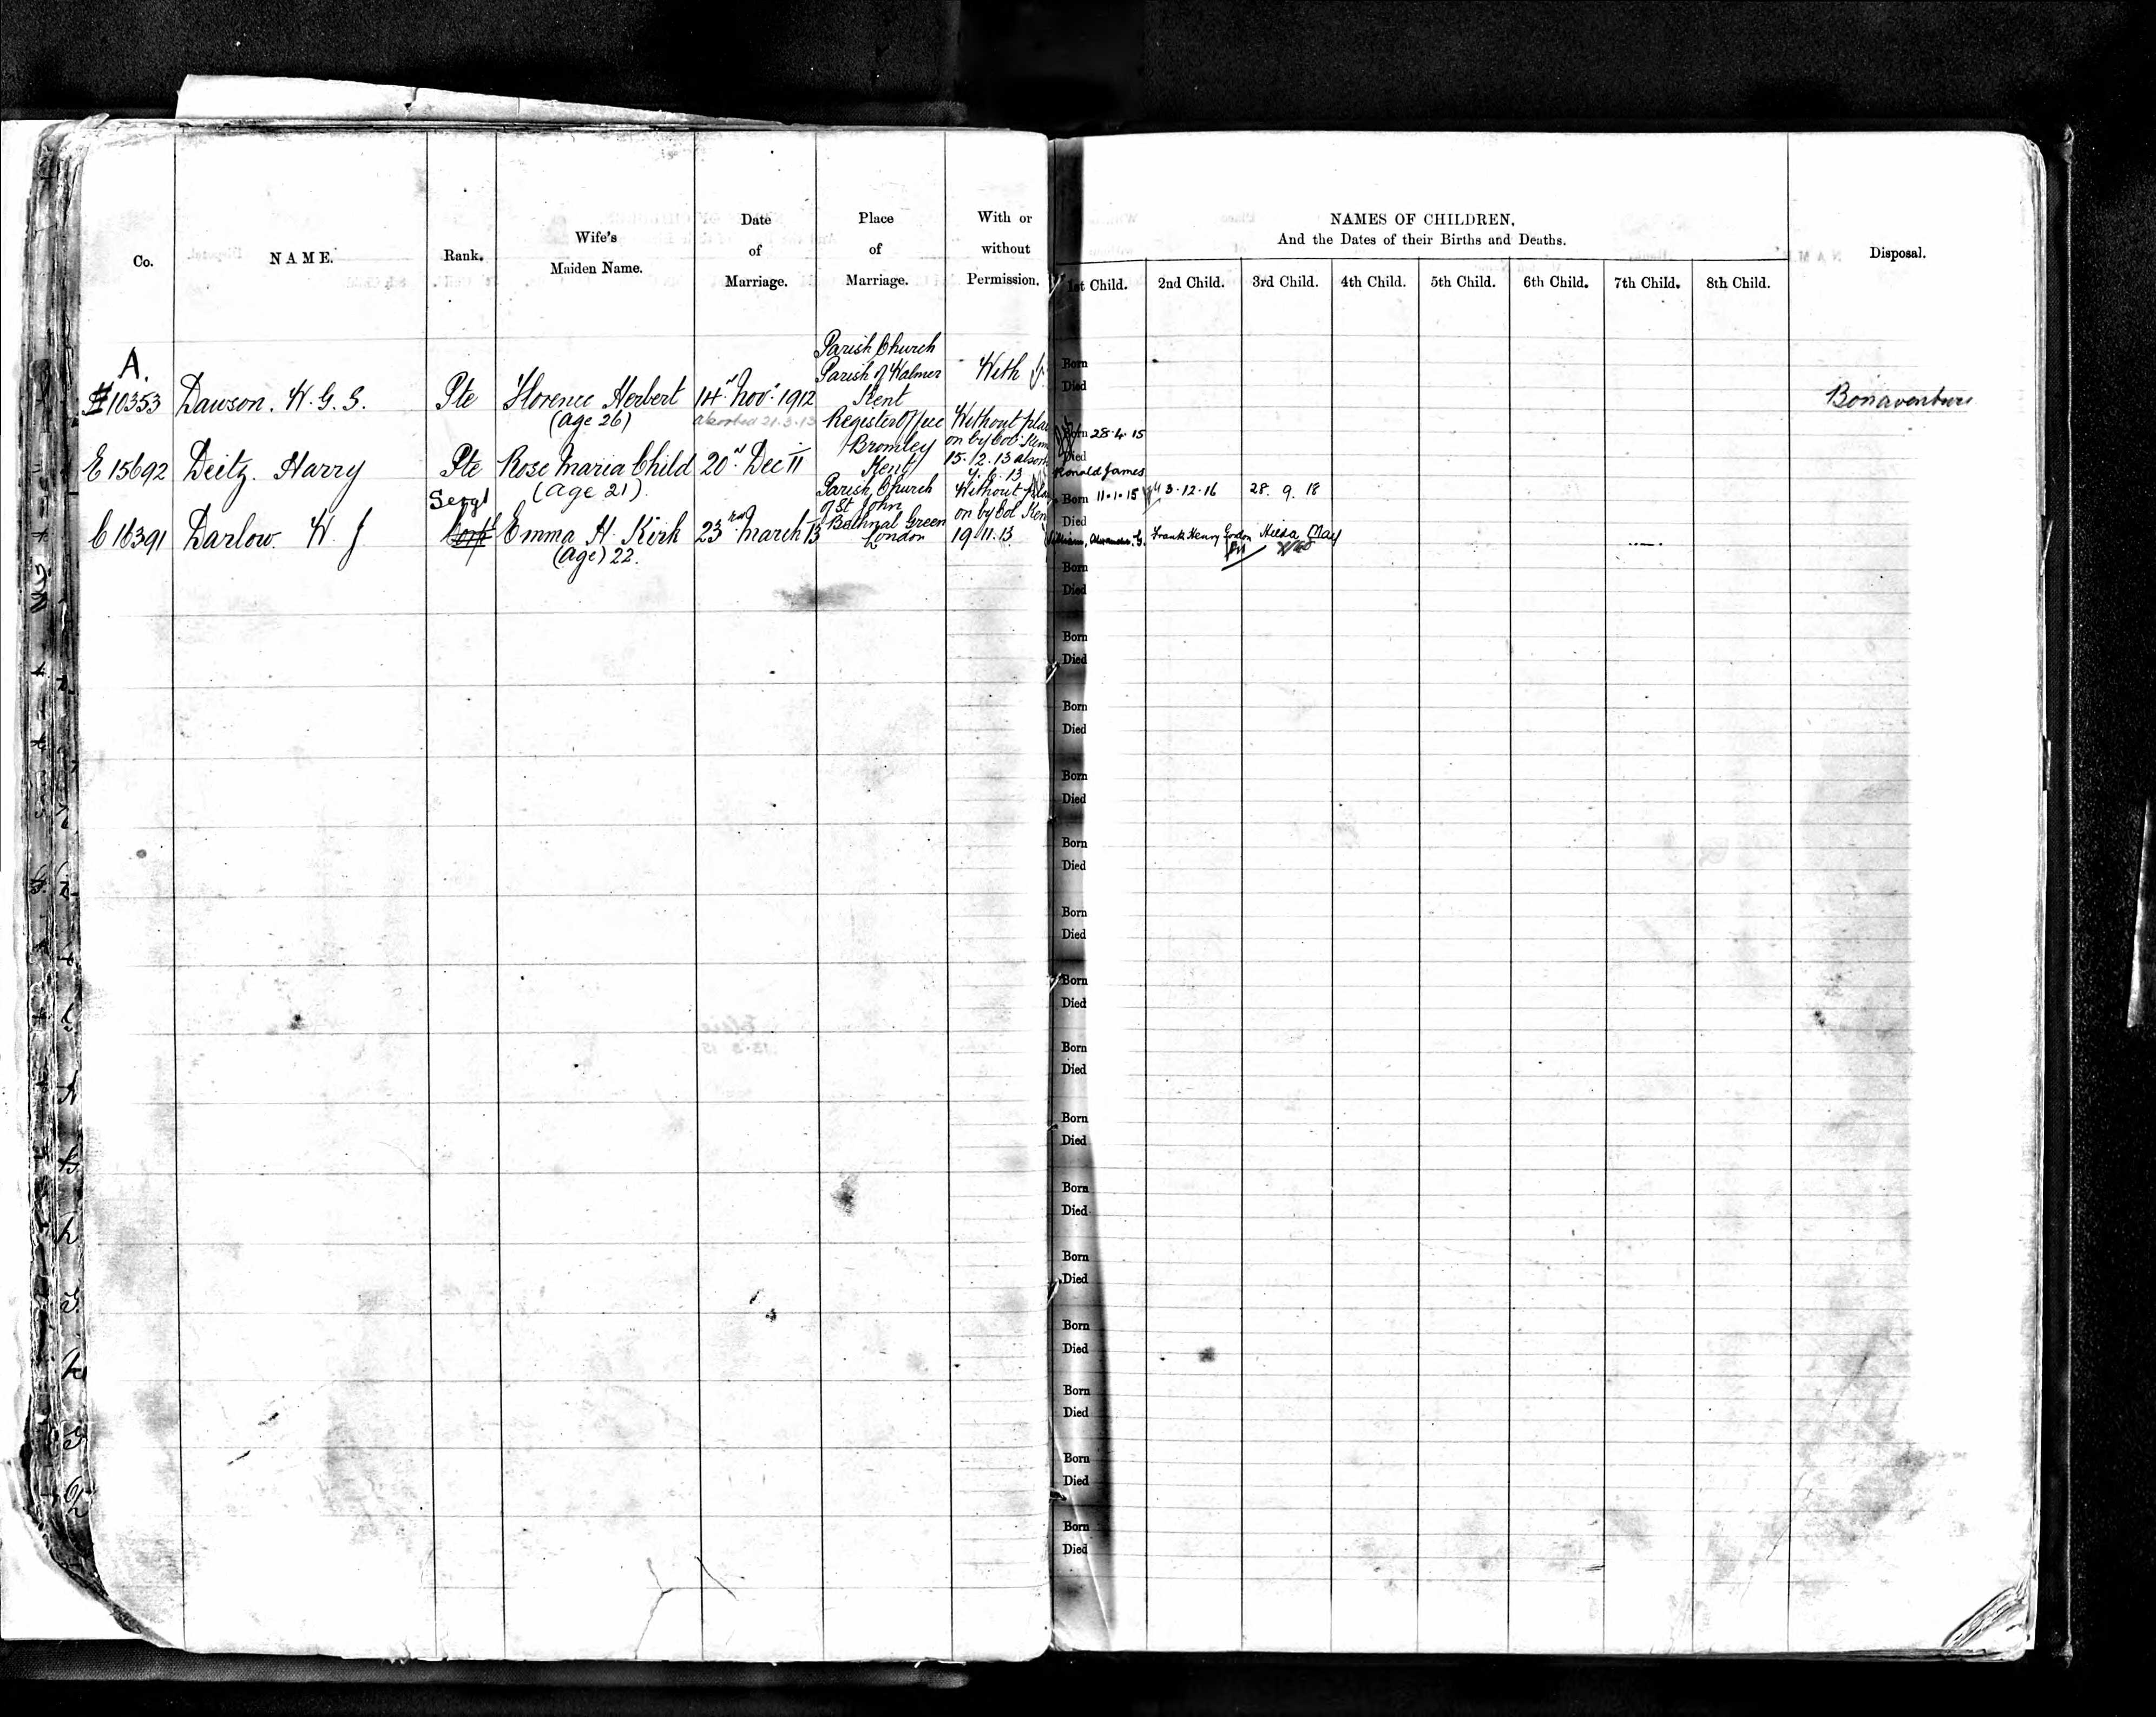 Co.
NAME.
Rank.
Wife's
Maiden Name.
Date
of
Marriage.
Place
of
Marriage.
With or
without
Permission.
NAMES OF CHILDREN,
And the Dates of their Births and Deaths.
1st Child.
2nd Child.
3rd Child.
4th Child.
5th Child.
6th Child.
7th Child.
8th Child.
Disposal.
A.
10353
Dawson. W. G. S.
Pte
Florence Herbert
(age 26)
14th Nov. 1912
absorbed 21.3.13
Parish Church
Parish of Walmer
Kent
With
Born
Died
Bonaventure
E 15692
Deitz. Harry
Pte
Rose Maria Child
(age 21).
20th Dec 11
Register Office
Bromley
Kent
Without
on by
15.12.13
Born 28.4.15
Died
Ronald James
C 16391
Darlow. W. J
Sergt
Corpl
Emma H. Kirk
(Age) 22.
23rd March 13
Parish Church
of St John
Bethnal Green
London
Without
on by Col
19.11.13
Born 11.1.15
3.12.16
28. 9. 18
Died
Frank Henry Gordon
May
Born
Died
Born
Died
Born
Died
Born
Died
Born
Died
Born
Died
Born
Died
Born
Died
Born
Died
Born
Died
Born
Died
Born
Died
Born
Died
Born
Died
Born
Died